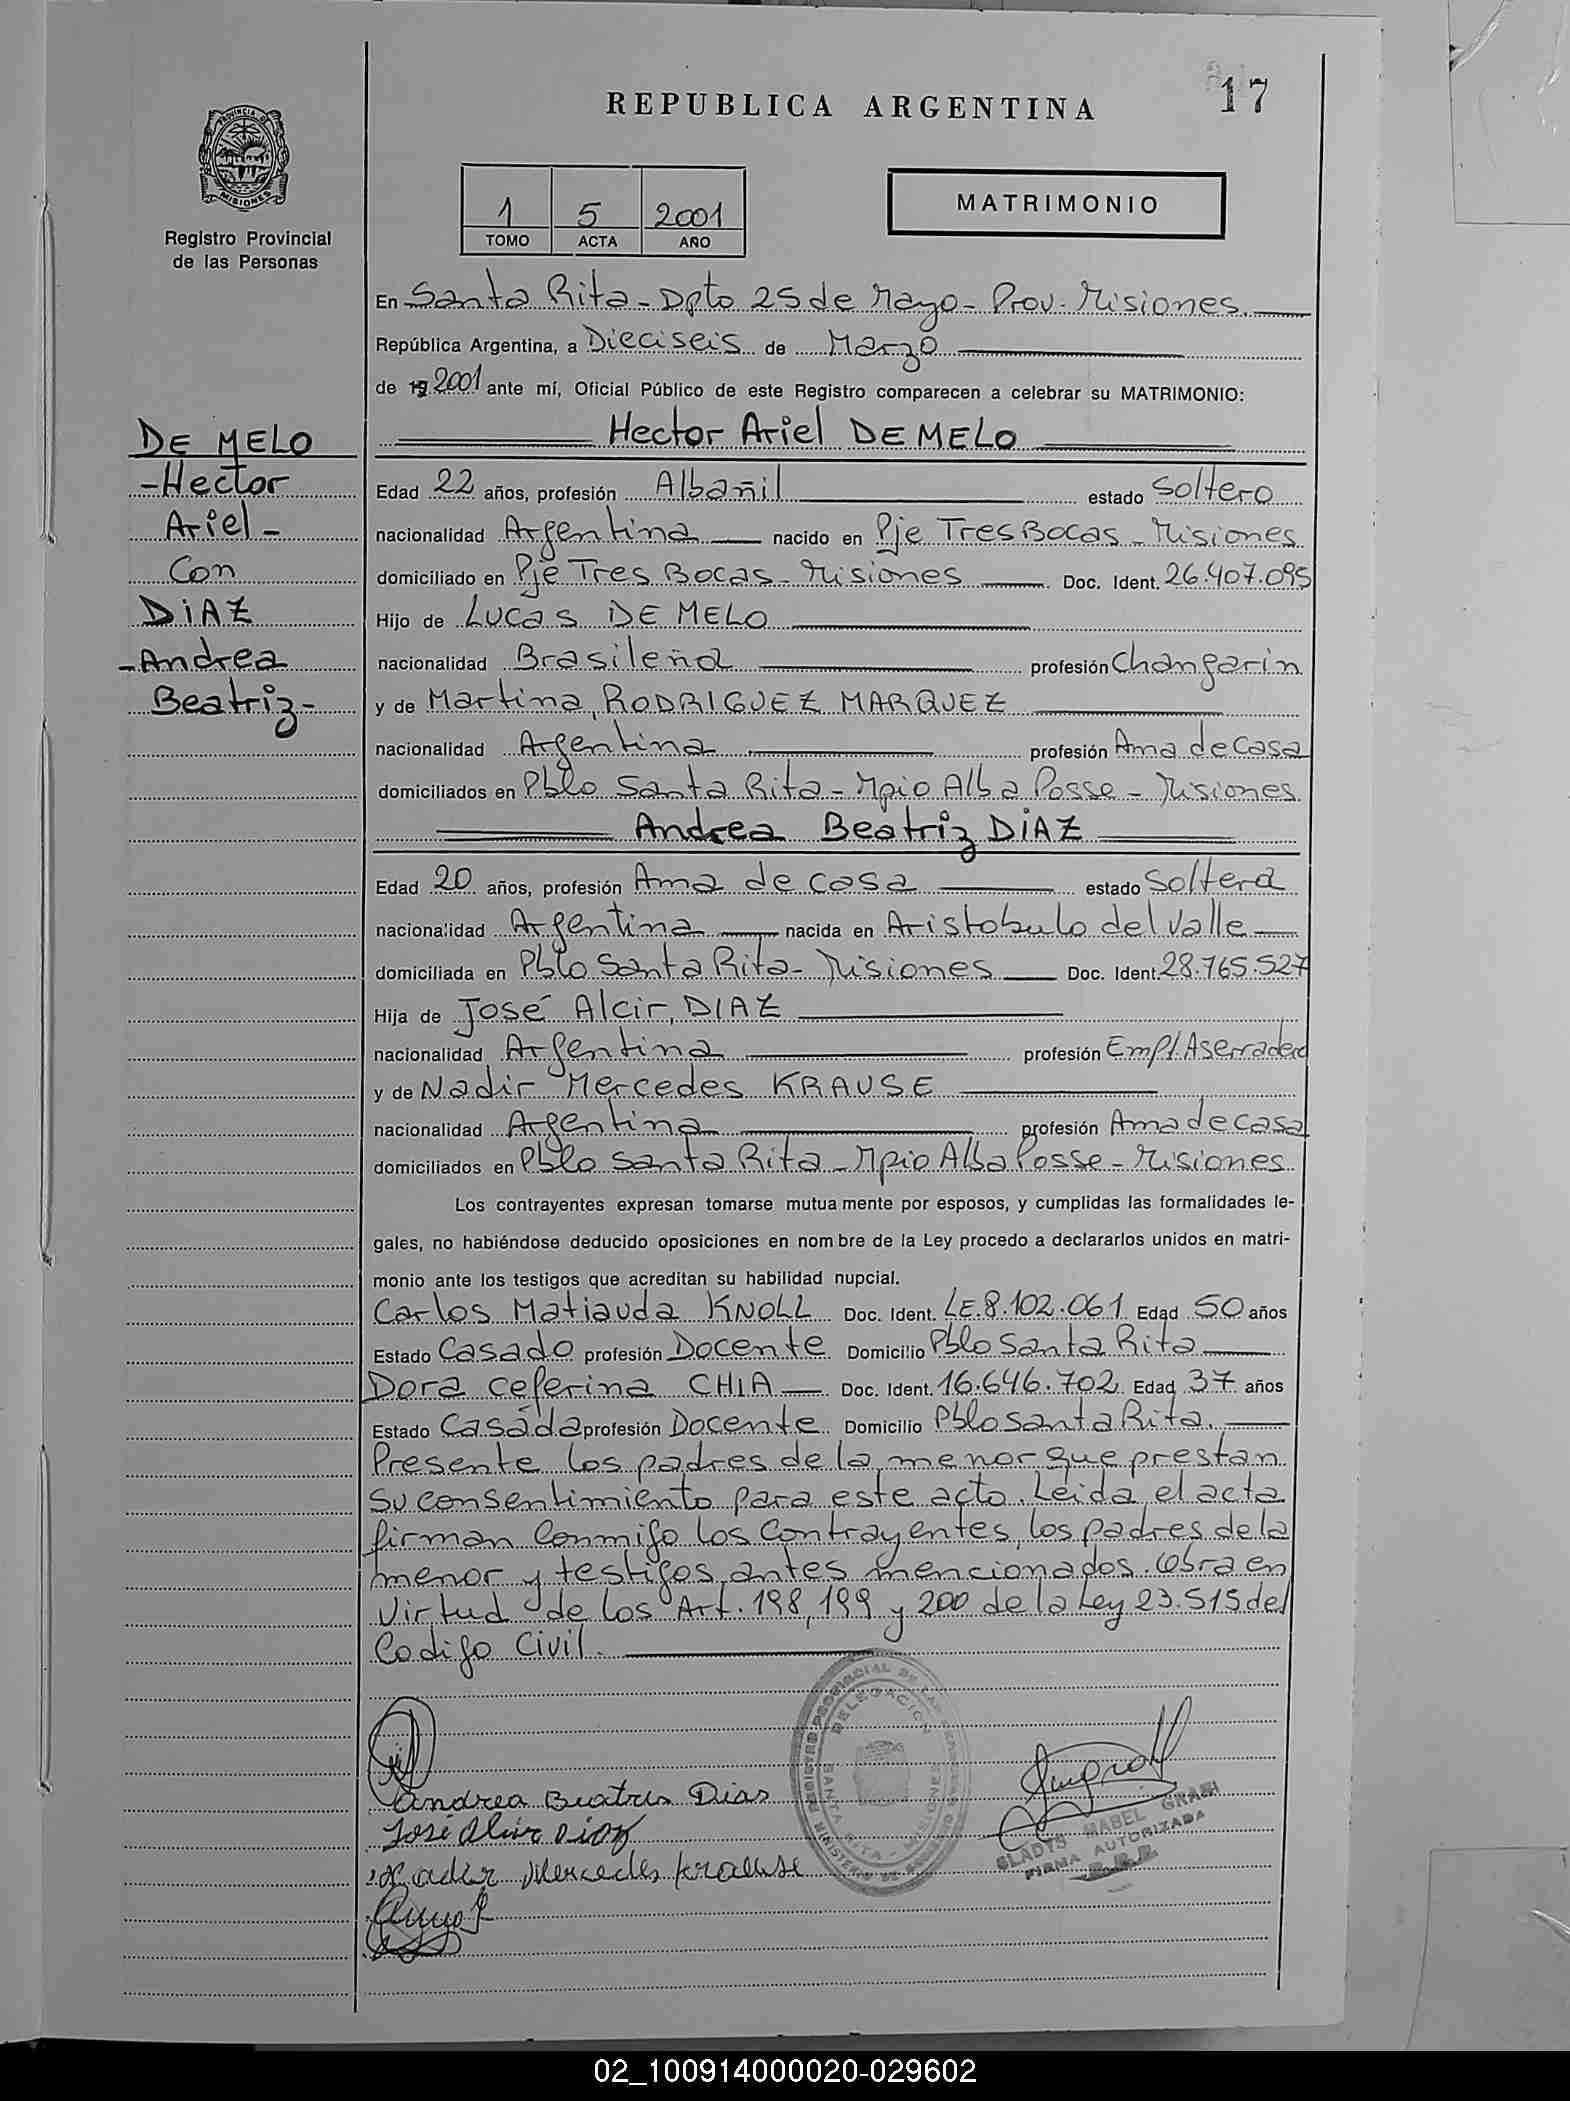 17
REPUBLICA ARGENTINA
PROVINCIA DE MISIONES
Registro Provincial
de las Personas
1 5 2001
TOMO ACTA AÑO
MATRIMONIO
En Santa Rita - Dpto 25 de Mayo - Prov. Misiones.
República Argentina, a Dieciseis de Marzo
de 19 2001 ante mí, Oficial Público de este Registro comparecen a celebrar su MATRIMONIO:
DE MELO
-Hector
Ariel-
Con
DIAZ
-Andrea
Beatriz-
Hector Ariel DE MELO
Edad 22 años, profesión Albañil estado Soltero
nacionalidad Argentina nacido en Pje Tres Bocas - Misiones
domiciliado en Pje Tres Bocas - Misiones Doc. Ident. 26.407.095
Hijo de Lucas DE MELO
nacionalidad Brasileña profesión Changarin
y de Martina, RODRIGUEZ MARQUEZ
nacionalidad Argentina profesión Ama de Casa
domiciliados en Pblo Santa Rita - Mpio Alba Posse - Misiones
Andrea Beatriz DIAZ
Edad 20 años, profesión Ama de casa estado Soltera
nacionalidad Argentina nacida en Aristobulo del Valle
domiciliada en Pblo Santa Rita - Misiones Doc. Ident. 28.765.527
Hija de José Alcir, DIAZ
nacionalidad Argentina profesión Empl. Aserradero
y de Nadir Mercedes KRAUSE
nacionalidad Argentina profesión Ama de casa
domiciliados en Pblo Santa Rita - Mpio Alba Posse - Misiones
Los contrayentes expresan tomarse mutuamente por esposos, y cumplidas las formalidades le-
gales, no habiéndose deducido oposiciones en nombre de la Ley procedo a declararlos unidos en matri-
monio ante los testigos que acreditan su habilidad nupcial.
Carlos Matiauda KNOLL Doc. Ident. LE. 8.102.061 Edad 50 años
Estado Casado profesión Docente Domicilio Pblo Santa Rita
Dora Ceferina CHIA Doc. Ident. 16.646.702 Edad 37 años
Estado Casada profesión Docente Domicilio Pblo Santa Rita.
Presente los padres de la menor que prestan
su consentimiento para este acto. Leida el acta
firman conmigo los contrayentes, los padres de la
menor y testigos antes mencionados. Obra en
virtud de los Art. 198, 199 y 200 de la Ley 23.515 del
Codigo Civil.
REGISTRO PROVINCIAL DE LAS PERSONAS
DELEGACION
SANTA RITA - MISIONES
Andrea Beatris Dias
José Alcir Diaz
Nadir Mercedes Krause
GLADYS MABEL
FIRMA AUTORIZADA
02_100914000020-029602